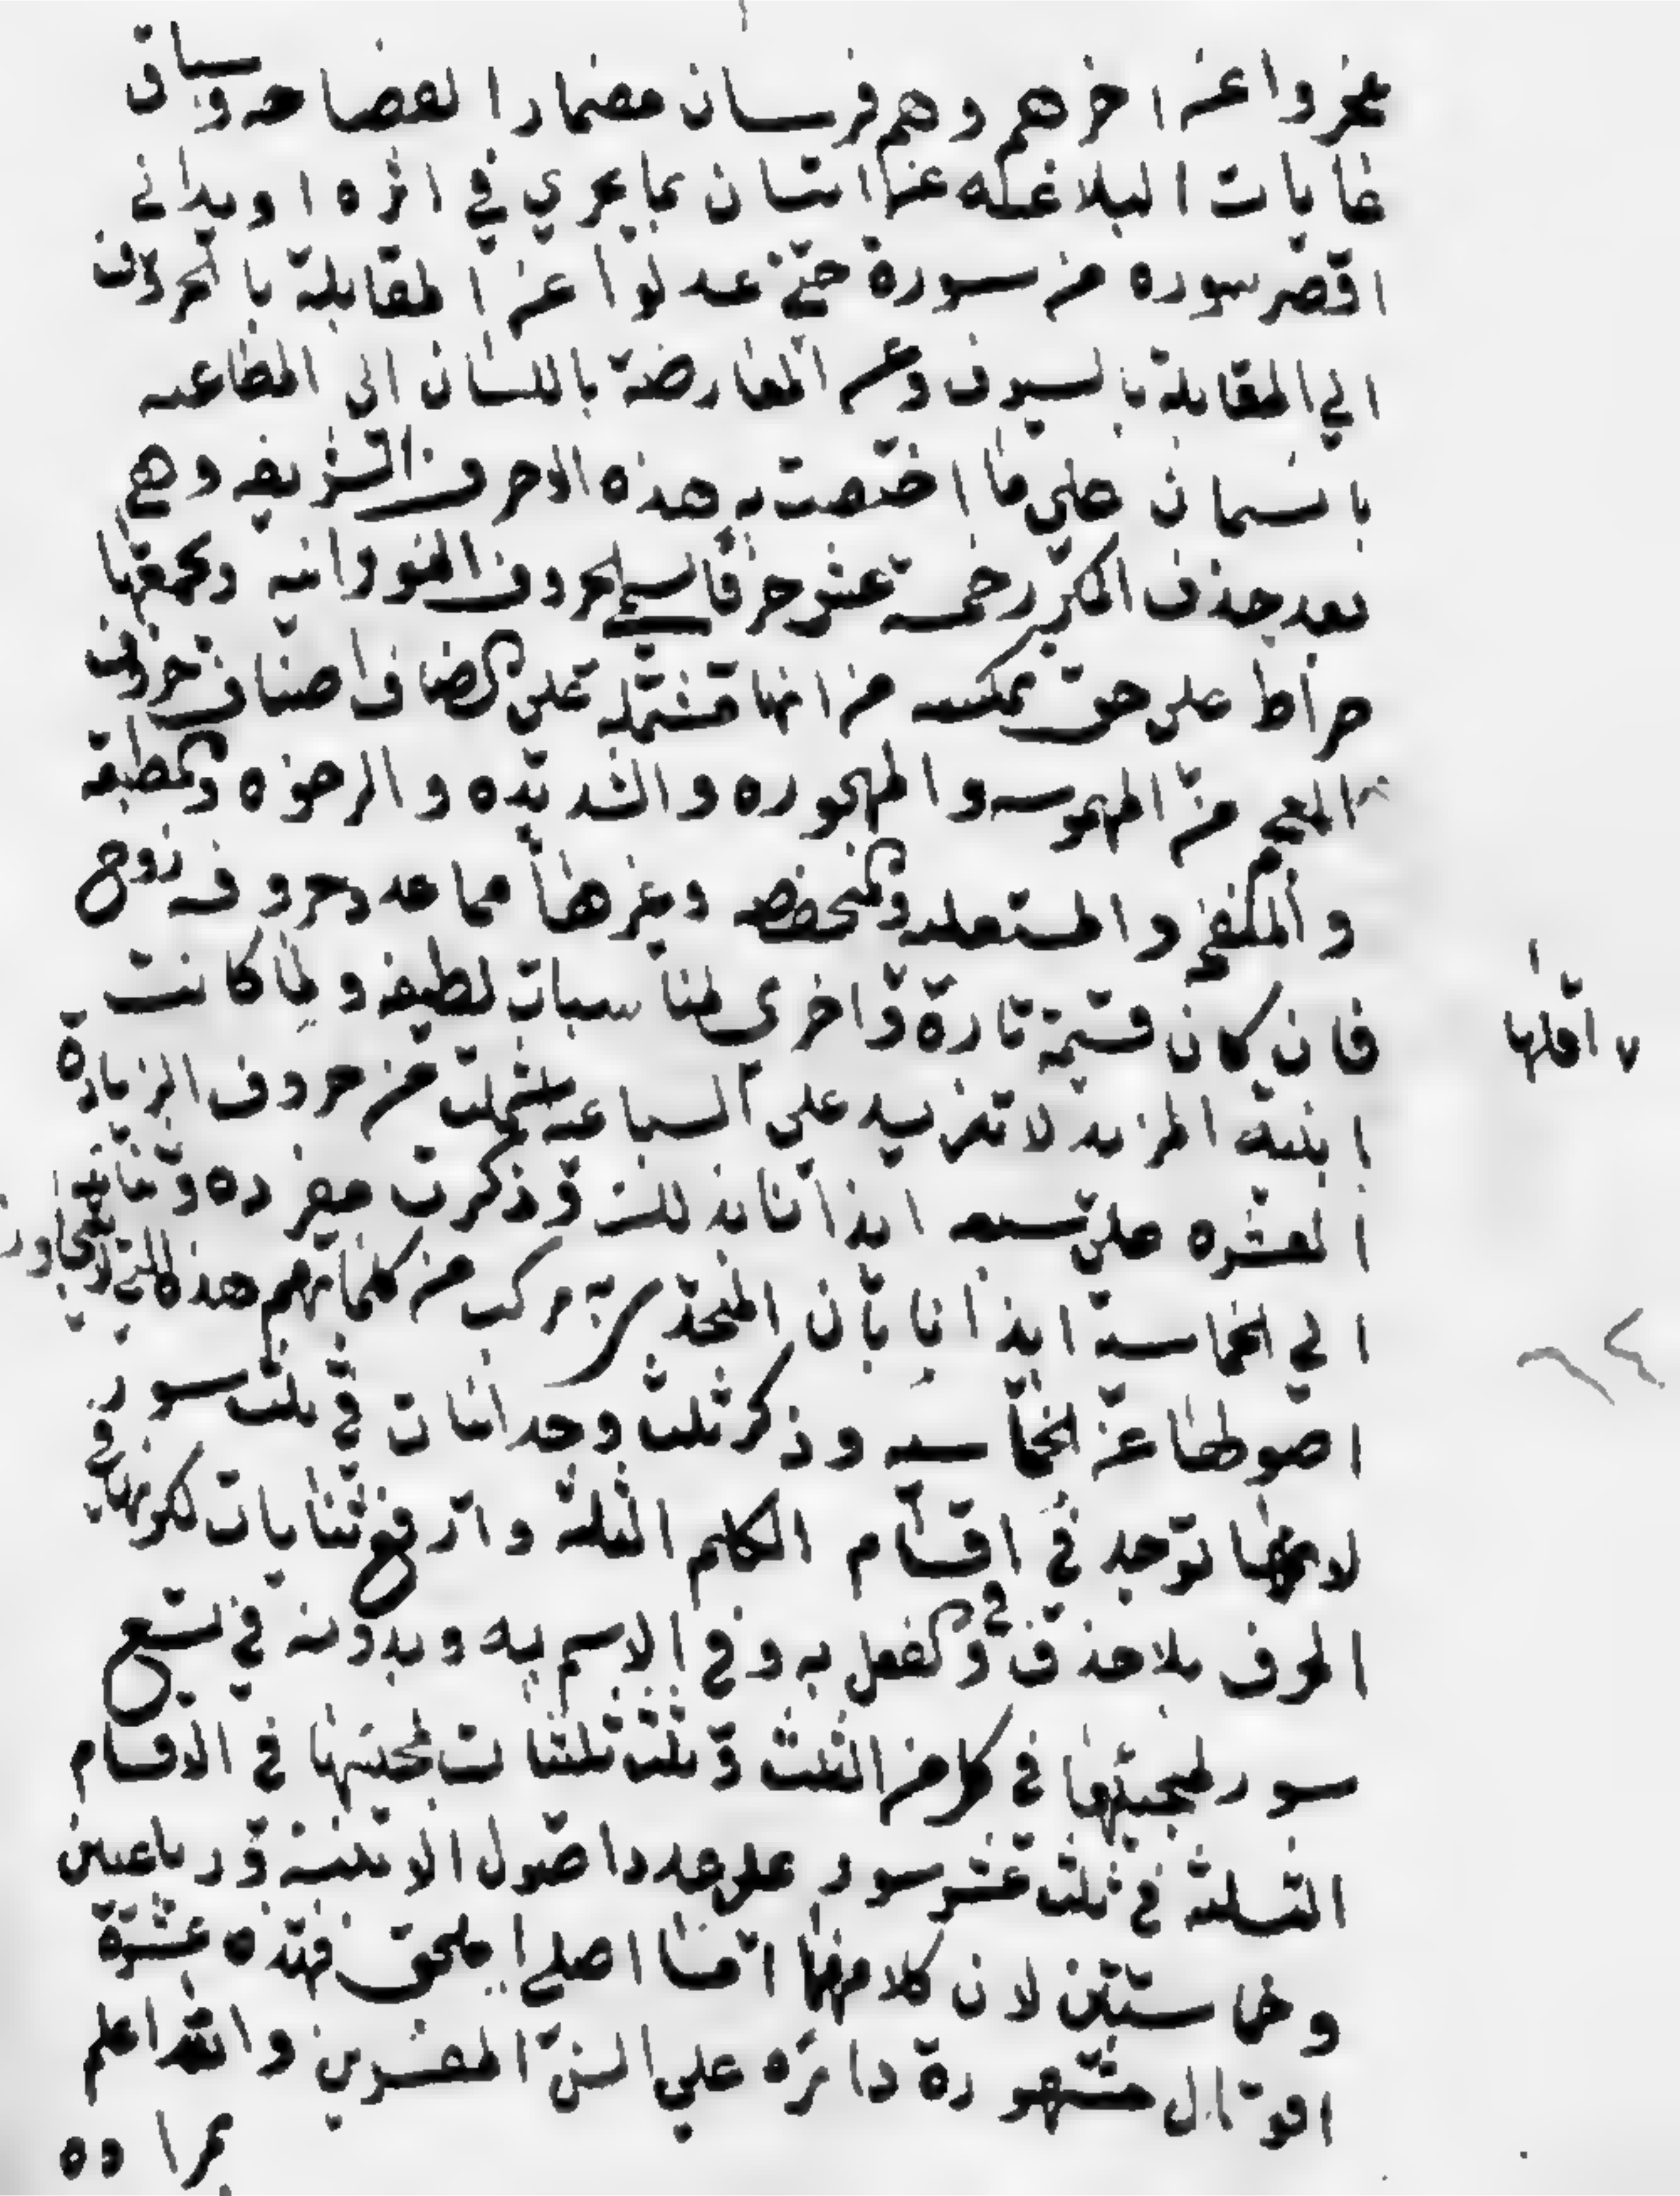 عجزوا عن اخرهم وهم فرسان مضمار الفصاحه وسباق
غايات البلاغه عن اتيان بما يجري في اثره او يداني
اقصر سوره من سورة حتى عدلوا عن المقابلة بالحروف
الي المقابلة بالسيوف وعن المعارضة باللسان الى المطاعنه
بالسنان على ما اختصت به هذه الاحرف الشريفه وهي
بعد حذف المكرر خمسة عشر حرفا تسمى الحروف النورانيه ويجمعها
صراط على حق نمسكه من انها مشتملة على انصاف اصناف حروف
المعجم من المهموسه والمجهوره والشديده والرخوه والمطبقه
والمنفتحه والمستعليه والمنخفضه وغيرها مما عدد حروفه زوج
فان كان قسمة تارة واخرى لمناسبات لطيفه ولما كانت
اقلها
ابنية المزيد لا تزيد على السباعيه اشتملت من حروف الزيادة
العشره على سبعه ايذانا بذلك وذكرت مفرده وثنائيه
الي الخماسية ايذانا بان المتحدى به مركب من كلماتهم هذه التي لا تتجاوز
اصولها عن الخماسيه وذكر ثلث وحدانات في ثلث سور
لانها توجد في اقسام الكلم الثلثه واربع ثنايات لكونها في
الحرف بلا حذف وفي الفعل به وفي الاسم به وبدونه في تسع
سور لمجيئها في كل من الثلث وثلث ثلثيات لمجيئها في الاقسام
الثلثة في ثلث عشر سور على عدد اصول الابنية ورباعيتين
وخماسيتين لان كلا منهما اما اصلي او ملحق فهذه عشرة
اقوال مشهورة دائره على السن المفسرين والله اعلم
بمراده